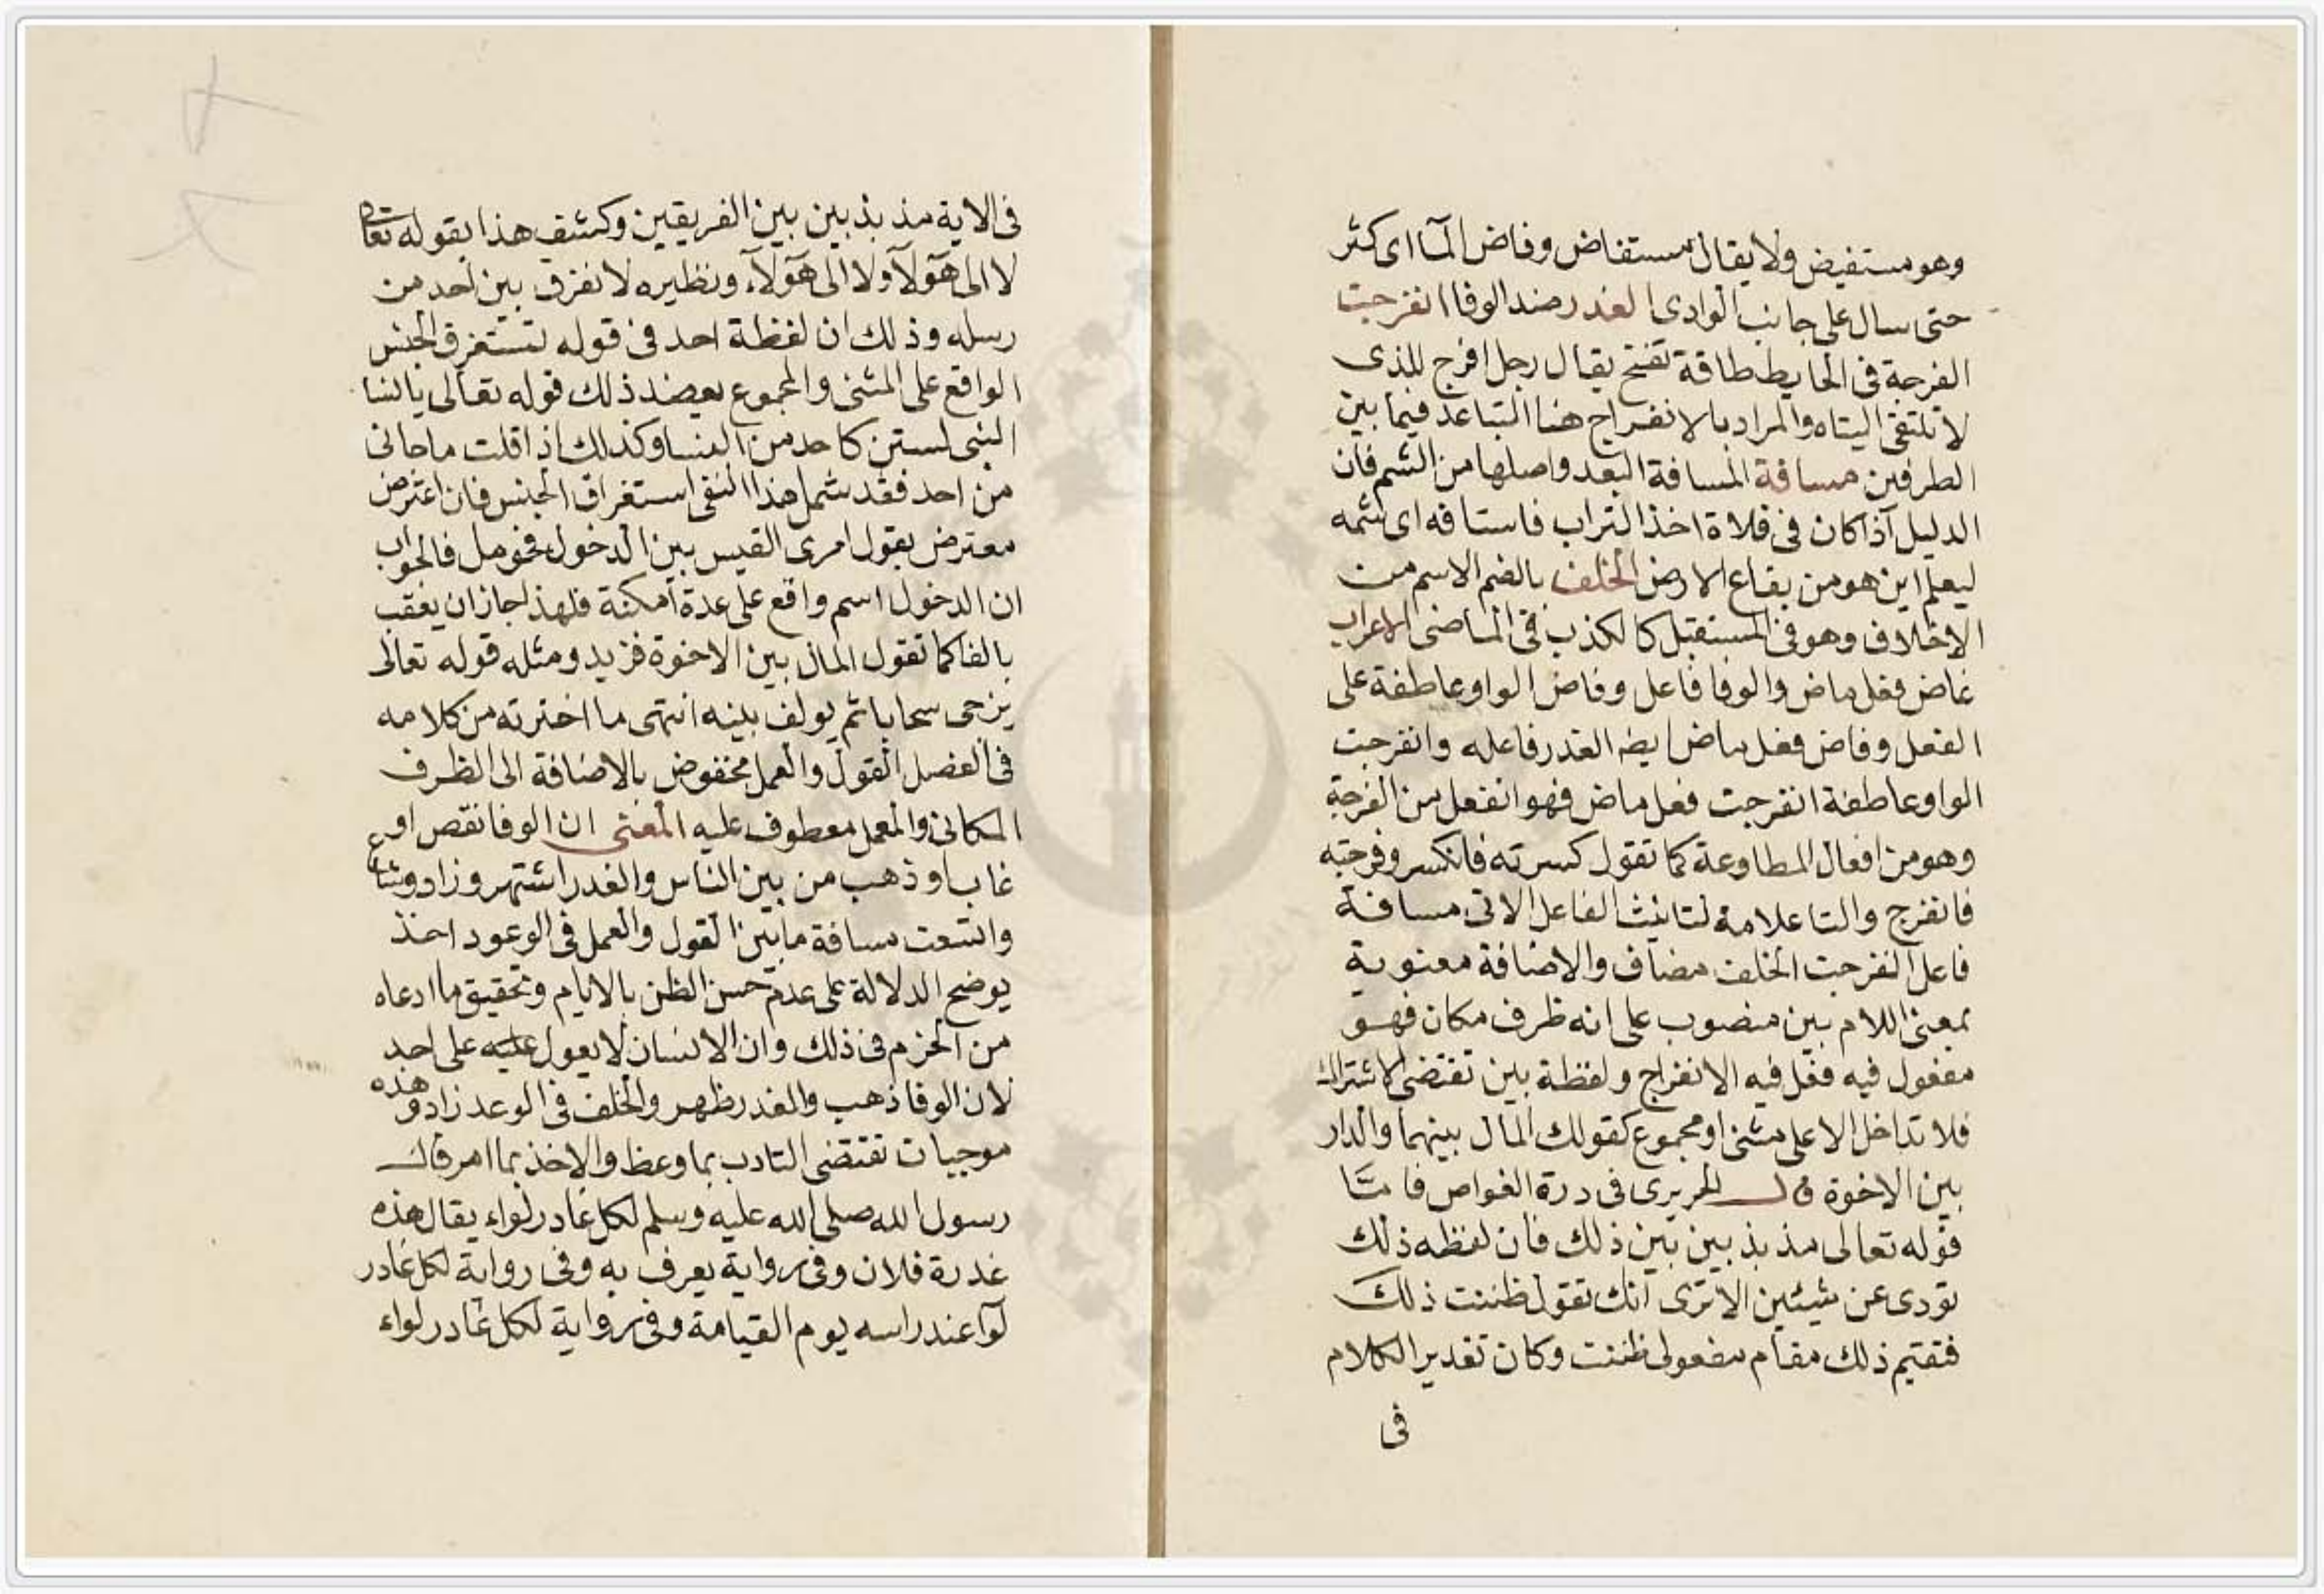 وهو مستفيض ولا يقال مستفاض وفاض المآ اى كثر
حتى سال على جانب الوادى الغدر ضد الوفا انفرجت
الفرجة فى الحايط طاقة تفتح يقال رجل افرج للذى
لا تلتقى اليتاه والمراد بالانفراج هنا التباعد فيما بين
الطرفين مسافة المسافة البعد واصلها من الشم فان
الدليل آذا كان فى فلاة اخذ التراب فاستافه اى شمه
ليعلم اين هو من بقاع الارض الخلف بالضم الاسم من
الاخلاف وهو فى المستقبل كالكذب فى الماضى الاعراب
غاض فعل ماض والوفا فاعل وفاض الواو عاطفة على
الفعل وفاض فعل ماض ايضا الغدر فاعله وانفرجت
الواو عاطفة انفرجت فعل ماض فهو انفعل من الفرجة
وهو من افعال المطاوعة كما تقول كسرته فانكسر وفرجته
فانفرج والتا علامة لتانيث الفاعل الاتى مسافة
فاعل انفرجت الخلف مضاف والاضافة معنوية
بمعنى اللام بين منصوب على انه ظرف مكان فهو
مفعول فيه فعل فيه الانفراج ولفظة بين تقتضى الاشتراك
فلا تداخل الا على مثنى او مجموع كقولك المال بينهما والدار
بين الاخوة قال الحريرى فى درة الغواص فامتا
قوله تعالى مذبذبين بين ذلك فان لفظه ذلك
تودى عن شيئين الا ترى انك تقول ظننت ذلك
فتقيم ذلك مقام مفعولى ظننت وكان تقدير الكلام
فى
فى الاية مذبذبين بين الفريقين وكشف هذا بقوله تعالى
لا الى هؤلآ ولا الى هؤلآء ونظيره لا نفرق بين احد من
رسله وذلك ان لفظة احد فى قوله تستغرق الجنس
الواقع على المثنى والمجموع يعضد ذلك قوله تعالى يا نسا
النبى لستن كاحد من النسا وكذلك اذا قلت ما جانى
من احد فقد شمل هذا النفى استغراق الجنس فان اعترض
معترض بقول امرى القيس بين الدخول فحومل فالجواب
ان الدخول اسم واقع على عدة امكنة فلهذا جاز ان يعقب
بالفا كما تقول المال بين الاخوة فزيد ومثله قوله تعالى
يزجى سحابا ثم يولف بينه انتهى ما اخترته من كلامه
فى الفصل القول والعمل مخفوض بالاضافة الى الظرف
المكانى والعمل معطوف عليه المعنى ان الوفا نقص او
غاب او ذهب من بين الناس والغدر اشتهر وزاد وشاع
واتسعت مسافة ما بين القول والعمل فى الوعود اخذ
يوضح الدلالة على عدم حسن الظن بالايام وتحقيق ما ادعاه
من الحزم فى ذلك وان الانسان لا يعول عليه على احد
لان الوفا ذهب والغدر ظهر والخلف فى الوعد زاد وهذه
موجبات تقتضى التادب بما وعظ والاخذ بما امر قال
رسول الله صلى الله عليه وسلم لكل غادر لواء يقال هذه
غدرة فلان وفى رواية يعرف به وفى رواية لكل غادر
لوآ عند راسه يوم القيامة وفى رواية لكل غادر لواء